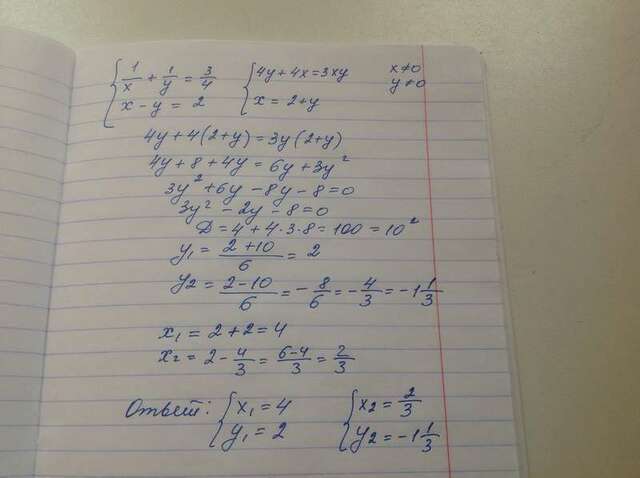 { 1/x + 1/y = 3/4 { 4y + 4x = 3xy x ≠ 0
x - y = 2 x = 2 + y y ≠ 0
4y + 4(2+y) = 3y(2+y)
4y + 8 + 4y = 6y + 3y²
3y² + 6y - 8y - 8 = 0
3y² - 2y - 8 = 0
D = 4 + 4·3·8 = 100 = 10²
y₁ = (2+10)/6 = 2
y2 = (2-10)/6 = -8/6 = -4/3 = -1 1/3
x₁ = 2 + 2 = 4
x₂ = 2 - 4/3 = (6-4)/3 = 2/3
Ответ: { x₁ = 4 { x2 = 2/3
y₁ = 2 y2 = -1 1/3